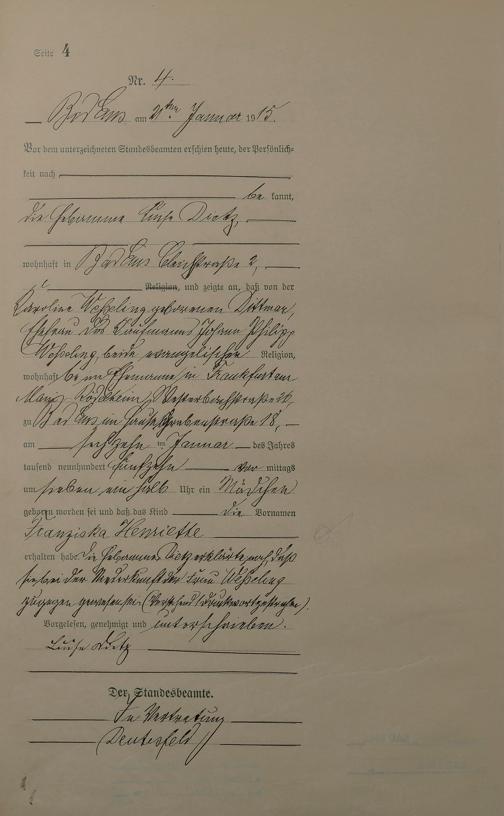 Seite 4
Nr. 4.
Bad Ems am 21ten Januar 1915.
Vor dem unterzeichneten Standesbeamten erschien heute, der Persönlich-
keit nach
be kannt,
die Hebamme Luise Dietz,
wohnhaft in Bad Ems Bleichstraße 2,
Religion, und zeigte an, daß von der
Caroline Wesseling geborenen Dittmar,
Ehefrau des Kaufmanns Johann Philipp
Wesseling, beide evangelischer Religion,
wohnhaft beim Ehemanne in Frankfurt am
Main Rödelheim, Westerbachstraße
zu Bad Ems im Hause Grabenstraße 18,
am sechzehn ten Januar des Jahres
tausend neunhundert fünfzehn vor mittags
um sieben ein halb Uhr ein Mädchen
geboren worden sei und daß das Kind die Vornamen
Franziska Henriette
erhalten habe. Die Hebamme Dietz erklärte noch, daß
sie bei der Niederkunft der Frau Wesseling
zugegen gewesen sei. (Vorstehend 1 Druckwort gestrichen).
Vorgelesen, genehmigt und unterschrieben.
Luise Dietz
Der Standesbeamte.
In Vertretung